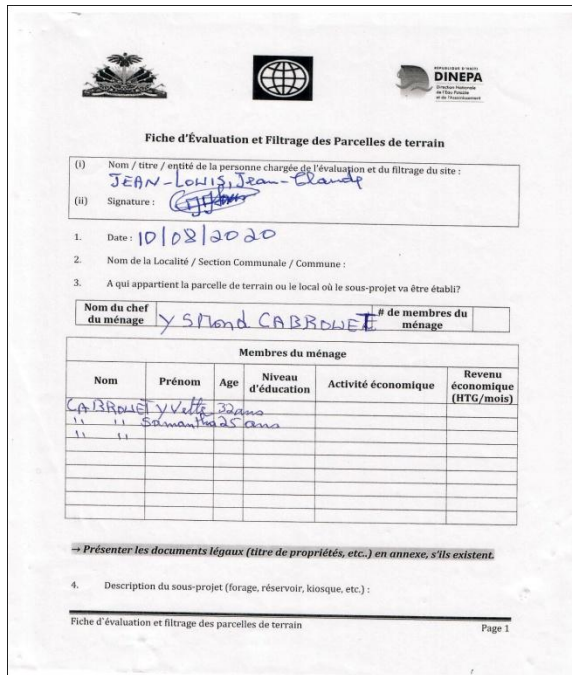 RÉPUBLIQUE D'HAÏTI
DINEPA
Direction Nationale
de l'Eau Potable
et de l'Assainissement
Fiche d'Évaluation et Filtrage des Parcelles de terrain
(i) Nom / titre / entité de la personne chargée de l'évaluation et du filtrage du site :
JEAN-LOUIS, Jean-Claude
(ii) Signature :
1. Date : 10/08/2020
2. Nom de la Localité / Section Communale / Commune :
3. A qui appartient la parcelle de terrain ou le local où le sous-projet va être établi?
Nom du chef du ménage YSMond CABROUET # de membres du ménage
Membres du ménage
Nom Prénom Age Niveau d'éducation Activité économique Revenu économique (HTG/mois)
CABROUET Yvette 32 ans
" " Samantha 25 ans
" "
→ Présenter les documents légaux (titre de propriétés, etc..) en annexe, s'ils existent.
4. Description du sous-projet (forage, réservoir, kiosque, etc.) :
Fiche d'évaluation et filtrage des parcelles de terrain Page 1